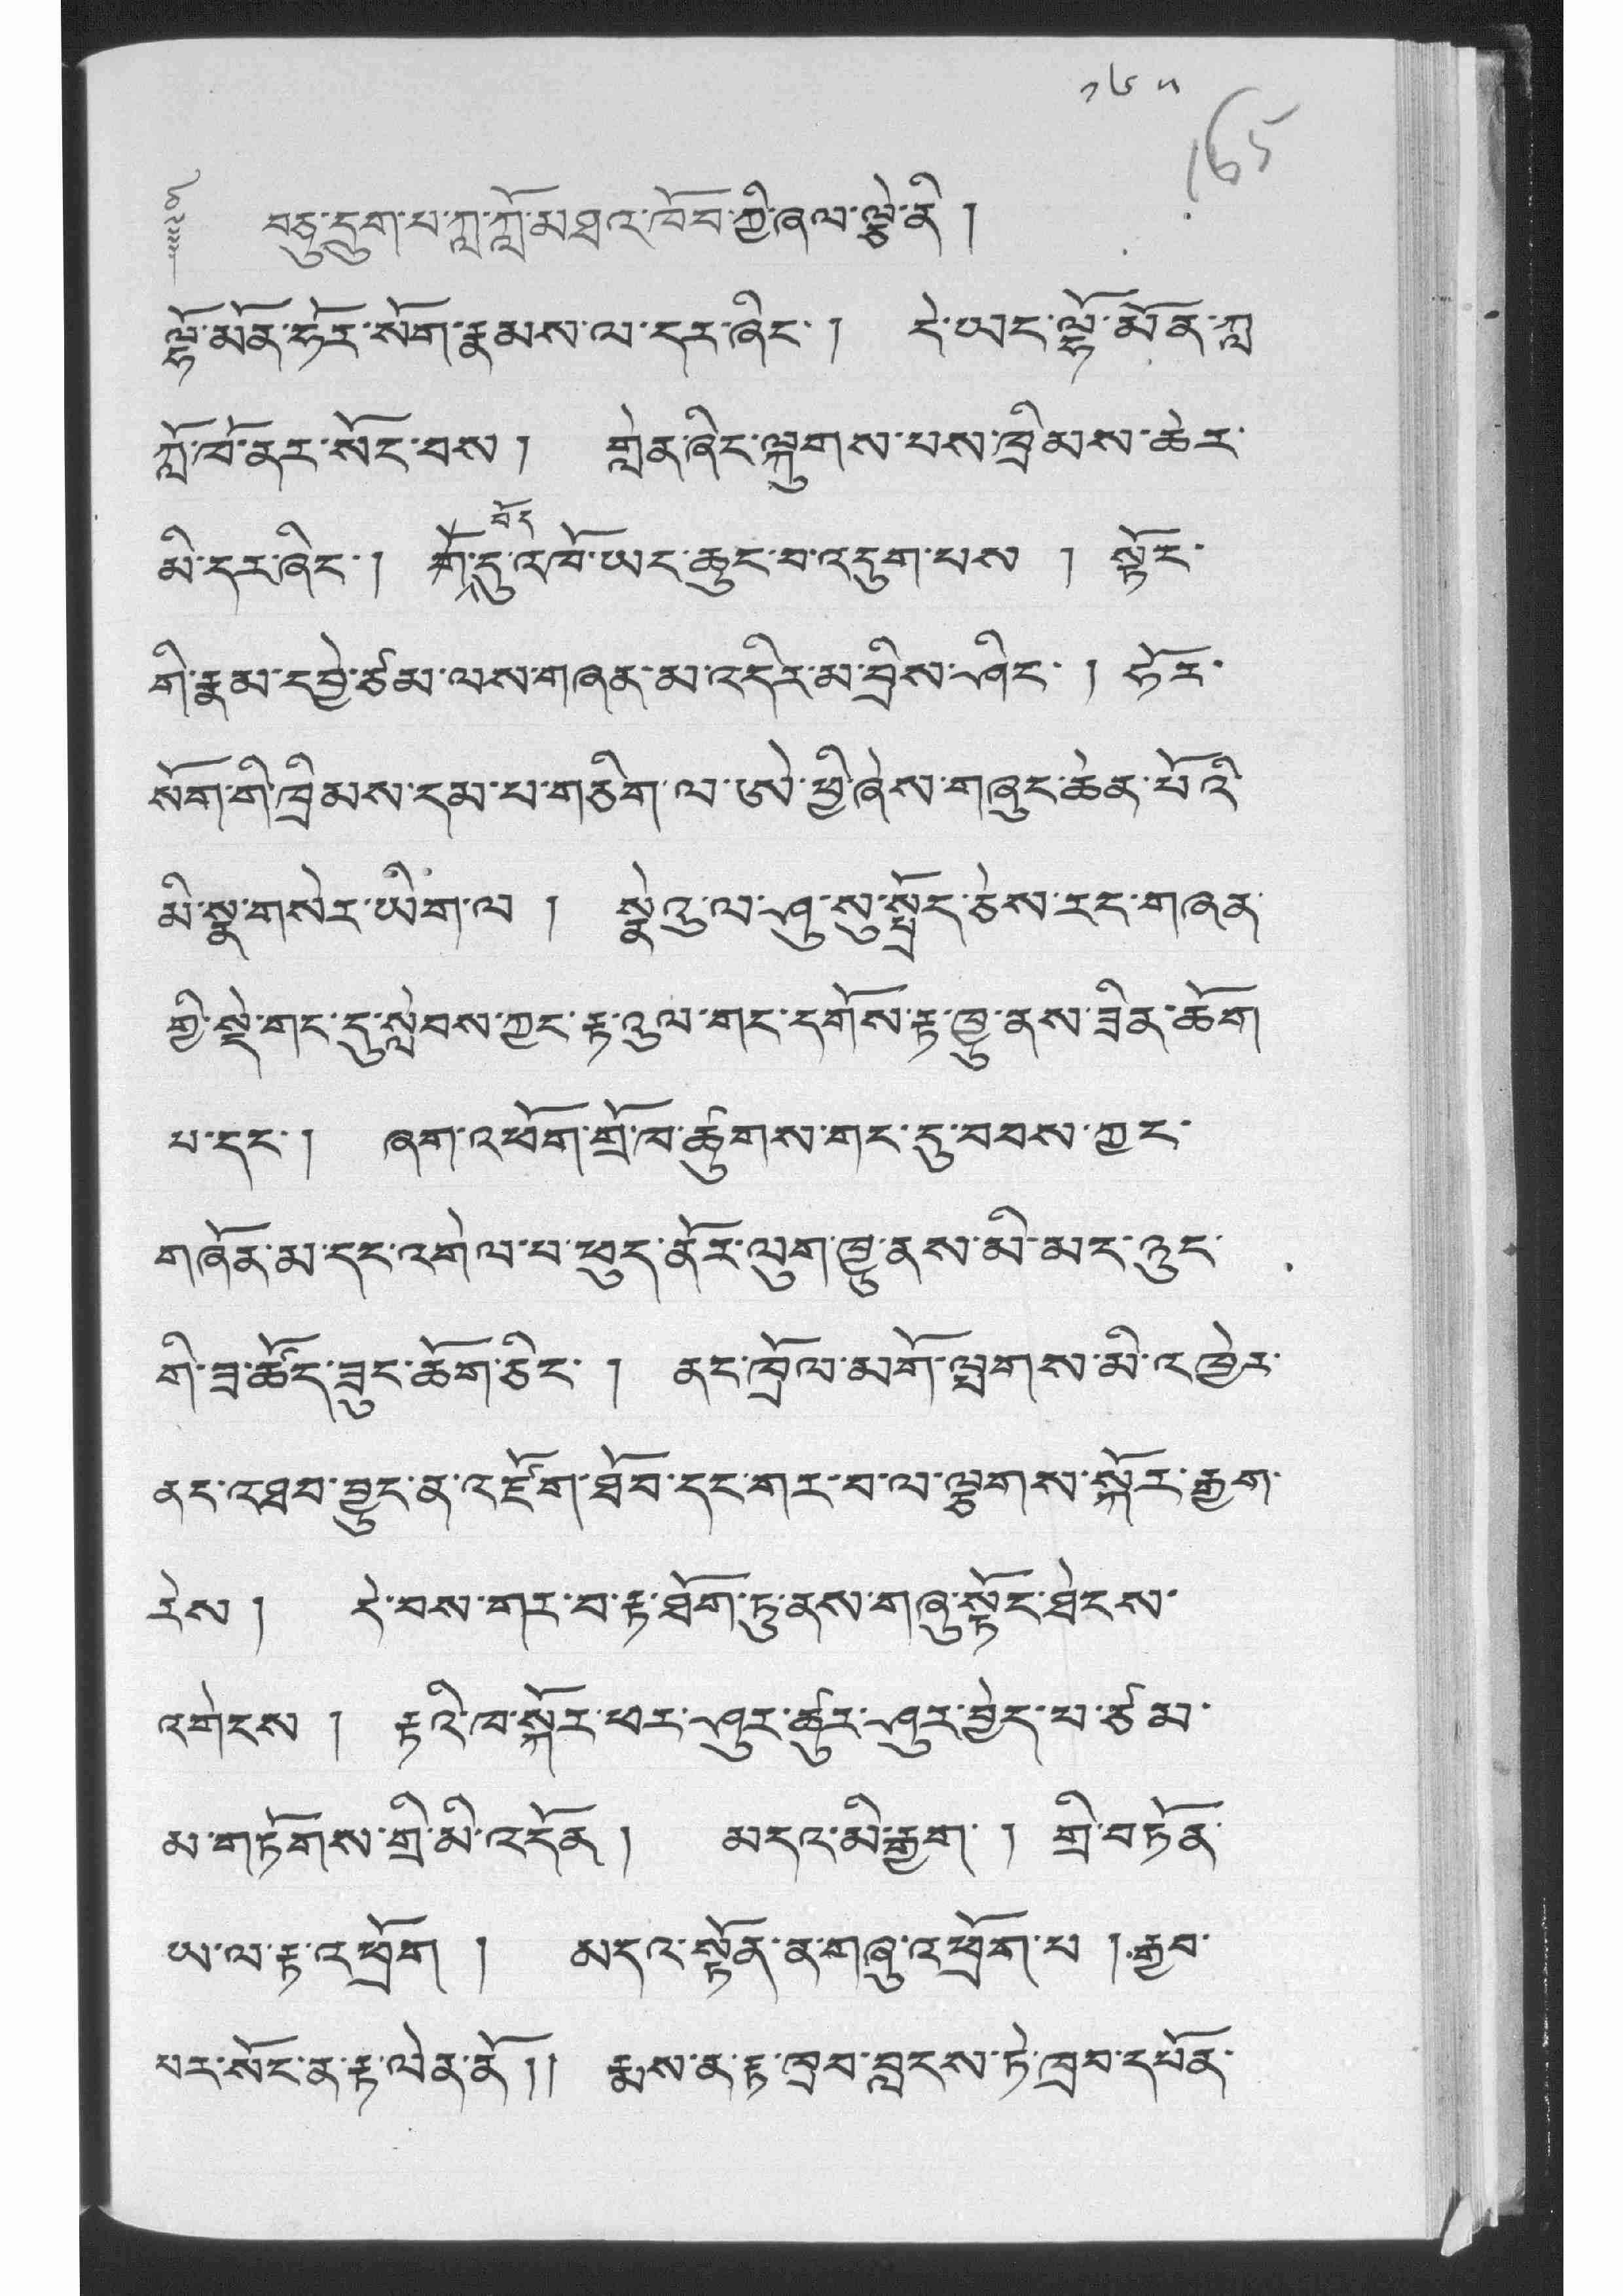 ༡༦༥
165
༄༅། བཅུ་དྲུག་པ་ཀླ་ཀློ་མཐའ་ཁོབ་ཀྱི་ཞལ་ལྕེ་ནི །
ལྷོ་མོན་ཧོར་སོག་རྣམས་ལ་དར་ཞིང་ ། དེ་ཡང་ལྷོ་མོན་ཀླ
ཀློ་ཁོ་ནར་སོང་བས ། གླེན་ཞིང་ལྐུགས་པས་ཁྲིམས་ཆེར་
མི་དར་ཞིང་ ། བོད་དུ་འཁོ་ཡང་ཆུང་བ་འདུག་པས ། སྟོང་
གི་རྣམ་དབྱེ་ཙམ་ལས་གཞན་མ་འདིར་མ་བྲིས་ཤིང་ ། ཧོར་
སོག་གི་ཁྲིམས་དམ་པ་གཅིག་ལ་ཨེ་ཕྱི་ཞེས་གཞུང་ཆེན་པོའི
མི་སྣ་གསེར་ཡིག་ལ ། སྣེའུ་ལ་ཤུ་སུ་སྤྲོད་ཅེས་རང་གཞན
གྱི་སྡེ་གང་དུ་སླེབས་ཀྱང་རྟ་འུལ་གང་དགོས་རྟ་ཁྱུ་ནས་ཟིན་ཆོག
པ་དང་ ། ཞག་འཕོག་གྲོ་ཁ་ཚུགས་གང་དུ་བབས་ཀྱང་
གཞོན་མ་དང་འགེལ་པ་ཕུད་ནོར་ལུག་ཁྱུ་ནས་མི་མང་ཉུང
གི་ཟ་ཚོད་ཟུང་ཆོག་ཅིང་ ། ནང་ཁྲོལ་མགོ་ལྤགས་མི་འཁྱེར་
ནང་འཐབ་བྱུང་ན་འཇོག་ཐོབ་དང་གར་བ་ལ་ལྕགས་སྐོར་རྒྱག་
རེས ། དེ་བས་གར་བ་རྟ་ཐོག་ཏུ་ནས་གཞུ་སྟོང་ཐེངས་
འགེངས ། རྟའི་ཁ་སྐོར་ཕར་ཤུར་ཚུར་ཤུར་བྱེད་པ་ཙམ་
མ་གཏོགས་གྲི་མི་འདོན ། མདའ་མི་རྒྱག་ ། གྲི་བཏོན་
ཡ་ལ་རྟ་འཕྲོག ། མདའ་སྟོན་ན་གཞུ་འཕྲོག་པ ། རྒྱབ་
པར་སོང་ན་རྟ་ལེན་ནོ །། རྨས་ན་རྟ་ཁྲབ་བླངས་ཏེ་ཁྲབ་དཔོན་